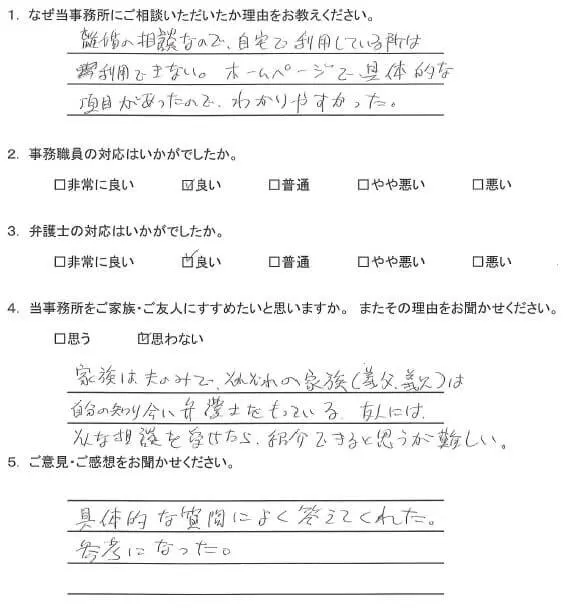 1. なぜ当事務所にご相談いただいたか理由をお教えください。
離婚の相談なので、自宅で利用している所は
利用できない。ホームページで具体的な
項目があったので、わかりやすかった。
2. 事務職員の対応はいかがでしたか。
□非常に良い ☑良い □普通 □やや悪い □悪い
3. 弁護士の対応はいかがでしたか。
□非常に良い ☑良い □普通 □やや悪い □悪い
4. 当事務所をご家族・ご友人にすすめたいと思いますか。 またその理由をお聞かせください。
□思う ☑思わない
家族は夫のみで、それぞれの家族(義父、義兄)は
自分の知り合いに弁護士をもっている。友人には、
そんな相談を受けたら、紹介できると思うが難しい。
5. ご意見・ご感想をお聞かせください。
具体的な質問によく答えてくれた。
参考になった。